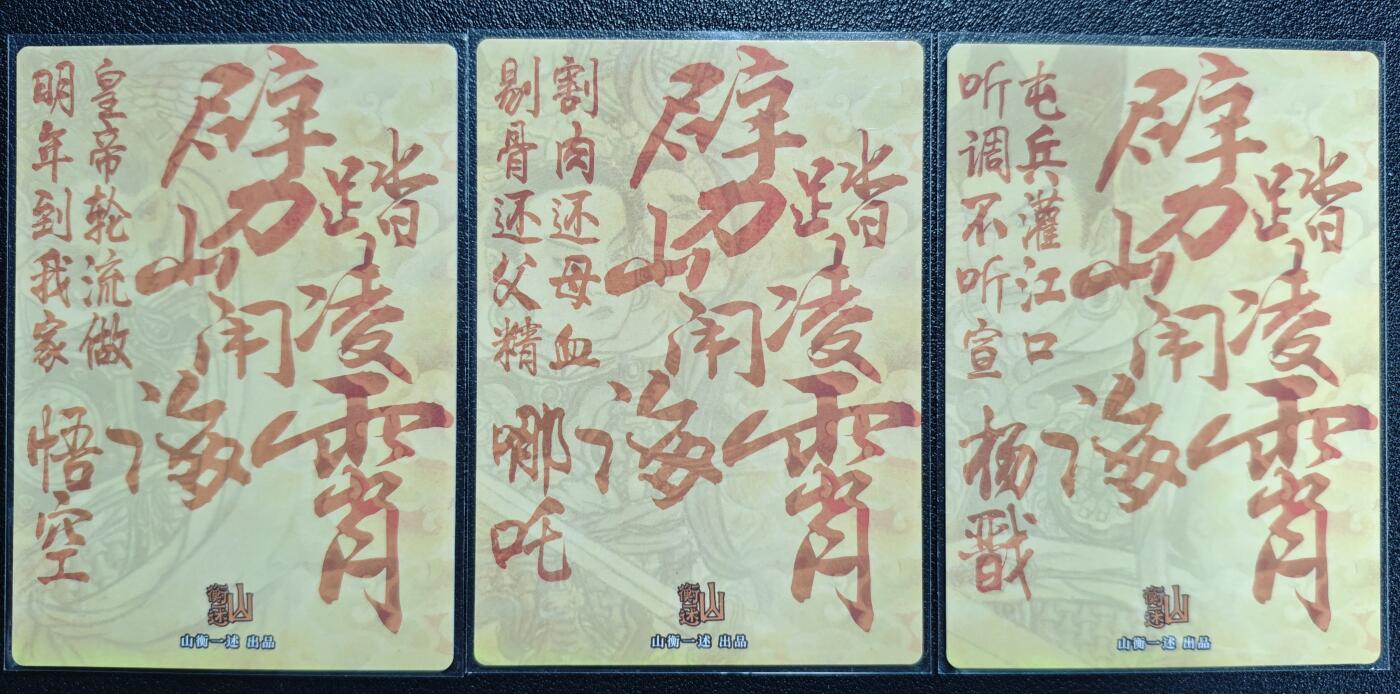 踏凌霄
劈山闹海
皇帝轮流做
明年到我家
悟空
山衡一述
山衡一述 出品
踏凌霄
劈山闹海
割肉还母血
剔骨还父精
哪吒
山衡一述
山衡一述 出品
踏凌霄
劈山闹海
屯兵灌江口
听调不听宣
杨戬
山衡一述
山衡一述 出品